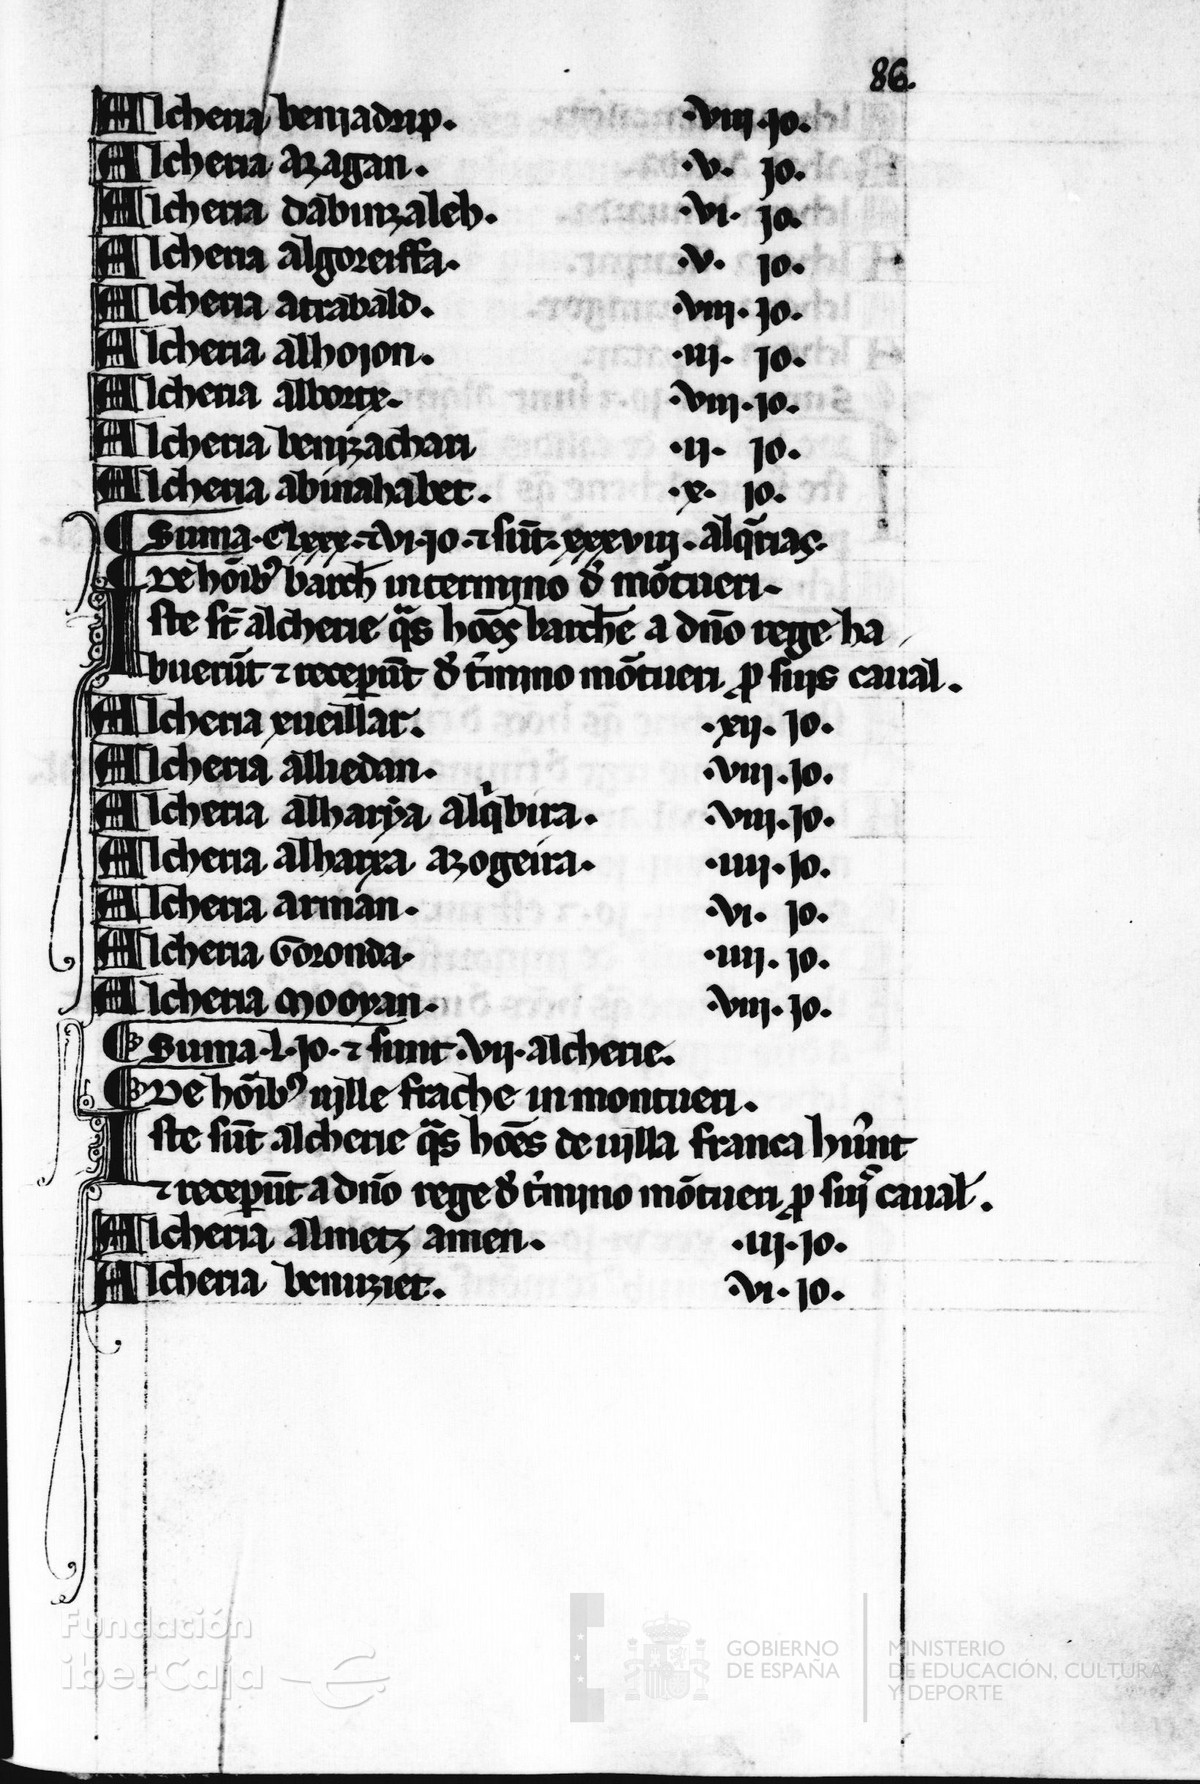 86.
Alcheria beniadrip. ·viii·jo.
Alcheria azagan. ·v· jo.
Alcheria dabinzaleh. ·vi· jo.
Alcheria algoreiffa. ·v· jo.
Alcheria atrabald. ·viii· jo.
Alcheria alhojon. ·iij· jo.
Alcheria alborrx. ·viii·jo.
Alcheria benizachari ·ij· jo.
Alcheria abinahabet. ·x· jo.
Suma·Clxxx·⁊vi·jo·⁊ sūt xxxviij· alq̄rias.
De hōib⁹ barch̄ in termino d̄ mōtueri.
Iste st̄ alcherie q̄s hoēs barch̄e a dn̄o rege ha
buerūt ⁊ receper̄ūt d̄ t̄mino mōtueri ꝓ suis caual.
Alcheria xueillar. ·xij· jo.
Alcheria alhedan. ·viii·jo.
Alcheria alharẏa alq̄bira. ·viii·jo.
Alcheria alharẏa azogeira. ·iiij·jo.
Alcheria arman. ·vi· jo.
Alcheria Goronda. ·iiij· jo.
Alcheria mooyan. ·viii· jo.
Suma·L·jo·⁊ sunt·vij·alcherie.
De hōib⁹ uille frache in montueri.
Iste sūt alcherie q̄s hoēs de uilla franca hūnt
⁊ recepūt a dn̄o rege d̄ t̄mino mōtueri ꝓ suis caual.
Alcheria almetz amen. ·iij·jo.
Alcheria benuziet. ·vi· jo.
Fundación
iberCaja
GOBIERNO
DE ESPAÑA
MINISTERIO
DE EDUCACIÓN, CULTURA
Y DEPORTE